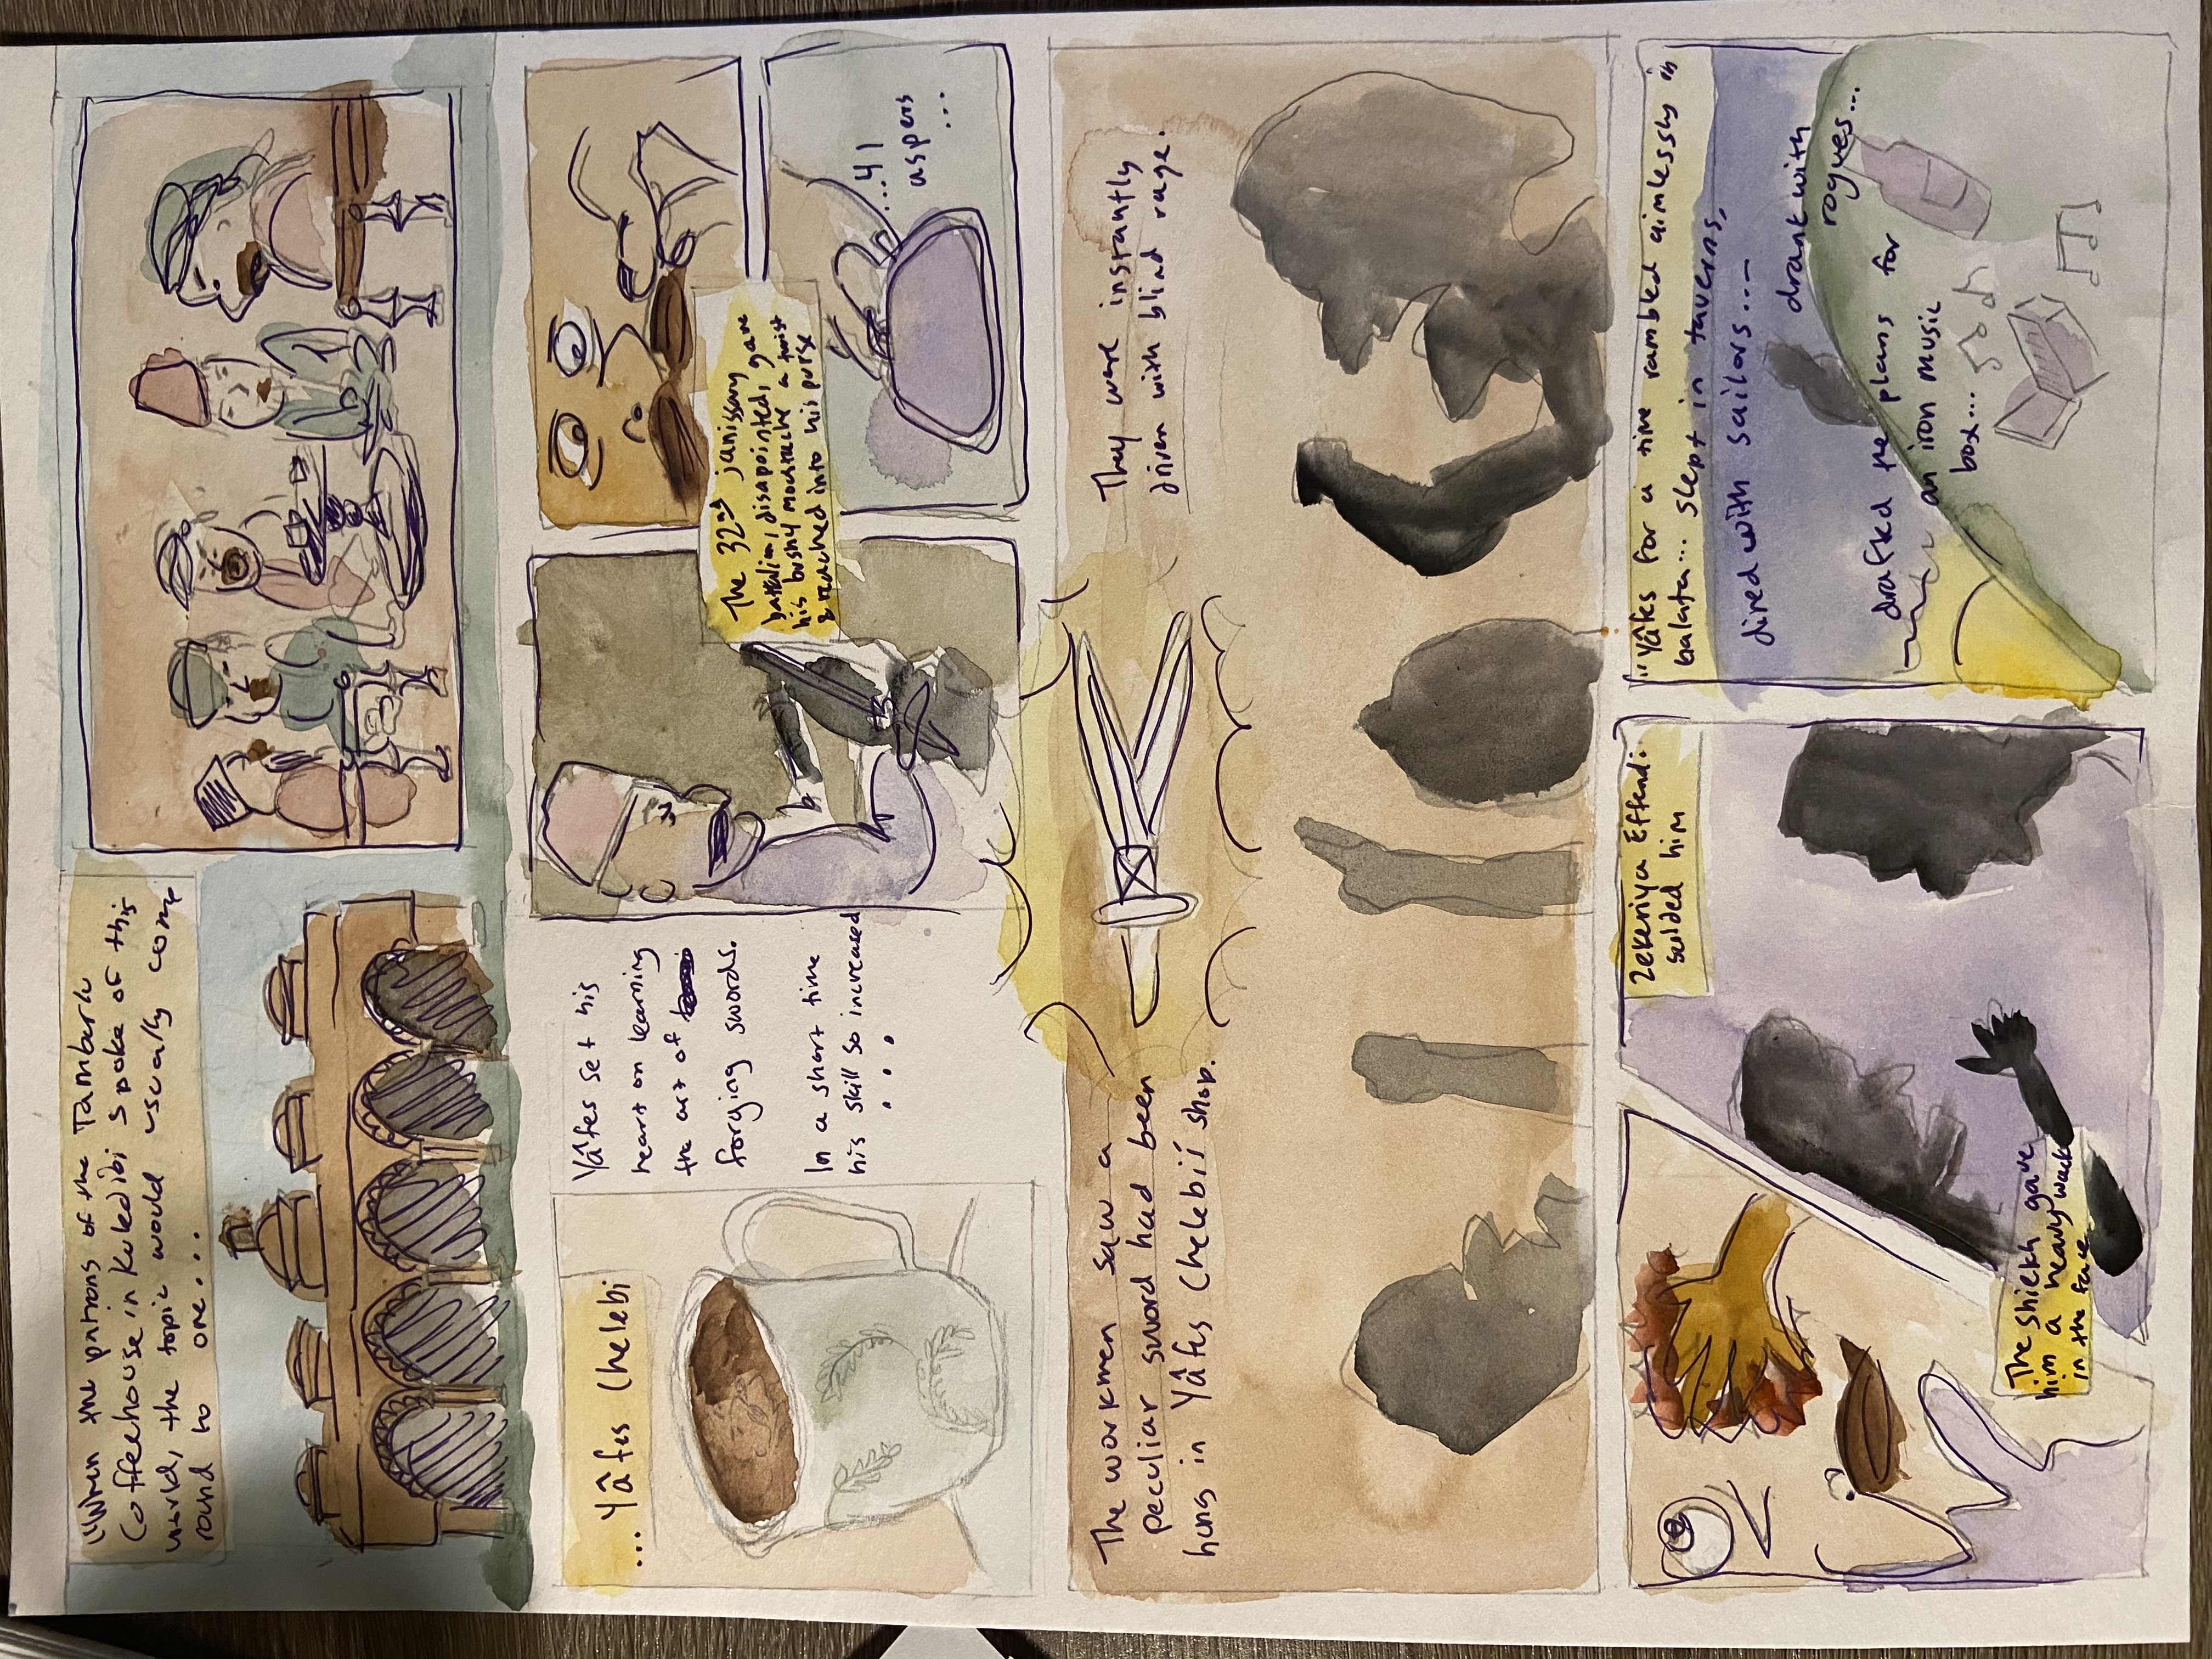 "When the patrons of the Tamburlu
Coffeehouse in Kuledibi spoke of this
world, the topic would usually come
round to one...
... Yâfes Chelebi
Yâfes set his
heart on learning
the art of
forging swords.
In a short time
his skill so increased
...
The 32nd janissary
battalion, disapointed, gave
his bushy moustache a twist
& reached into his purse
...41
aspers
...
The workmen saw a
peculiar sword had been
hung in Yâfes Chelebi's shop.
They were instantly
driven with blind rage.
The shiekh gave
him a heavy wack
in the face
Zekeriya Effendi
sulded him
"Yâfes for a time rambled aimlessly in
Galata... slept in taverns,
dined with sailors...
drank with
rogues...
drafted the plans for
an iron music
box...